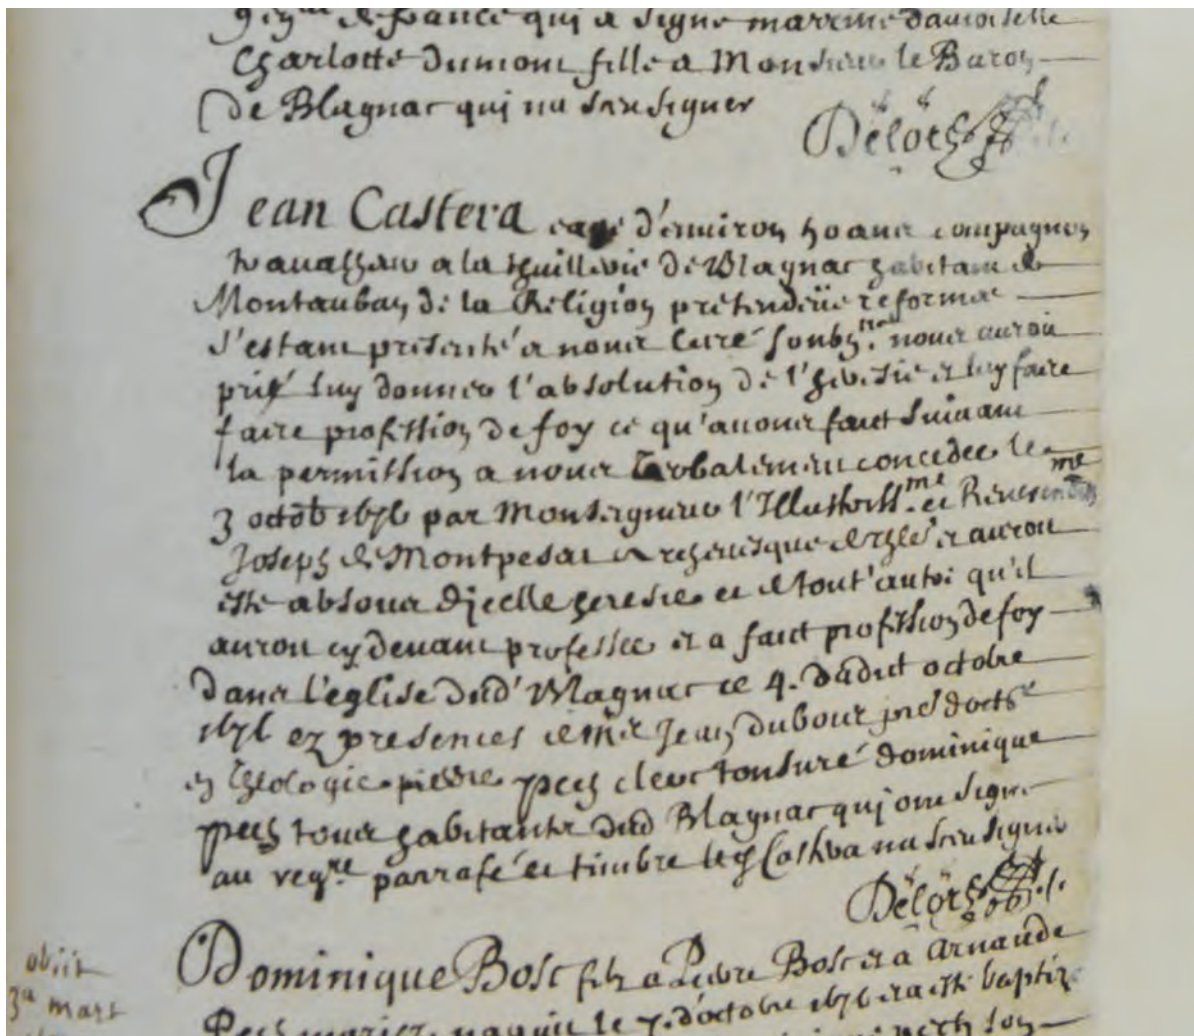 de france qui a signe marrine damoiselle
Charlotte dumont fille a Monsieur le Baron
de Blagnac qui na sceu signer
Delorh
Jean Castera eage d'environ ans compagnon
travailhan a la thuillerie de Blagnac habitant de
Montauban de la Religion pretendüe reformee
s'estant presenté a nous Curé soubz.né nous auroit
prié luy donner l'absolution de l'heresie et luy faire
faire profession de foy ce qu'avons faict suivant
la permission a nous verbalement concedee le
3 octob 1676 par Monseigneur l'Illustriss.me et Reverendis.me
Joseph de Montpesat Archevesque de et auroit
esté absous d'jcelle heresie et de tout'autre qu'il
auroit cy devant professee et a faict profession de foy
dans l'eglise dud' Blagnac ce 4. dudict octobre
1676 ez presences de Mr Jean dubour docte
en theologie pierre pech clerc tonsuré dominique
pech tous habitants dud Blagnac qui ont signe
au reg.re parrafé et timbre led Castera na sceu signer
Delorh
obiit
3a mart
Dominique Bosc filz a Pierre Bosc et a Arnaude
Pech mariez naquit le 7. d'octobre 1676 et a esté baptizé